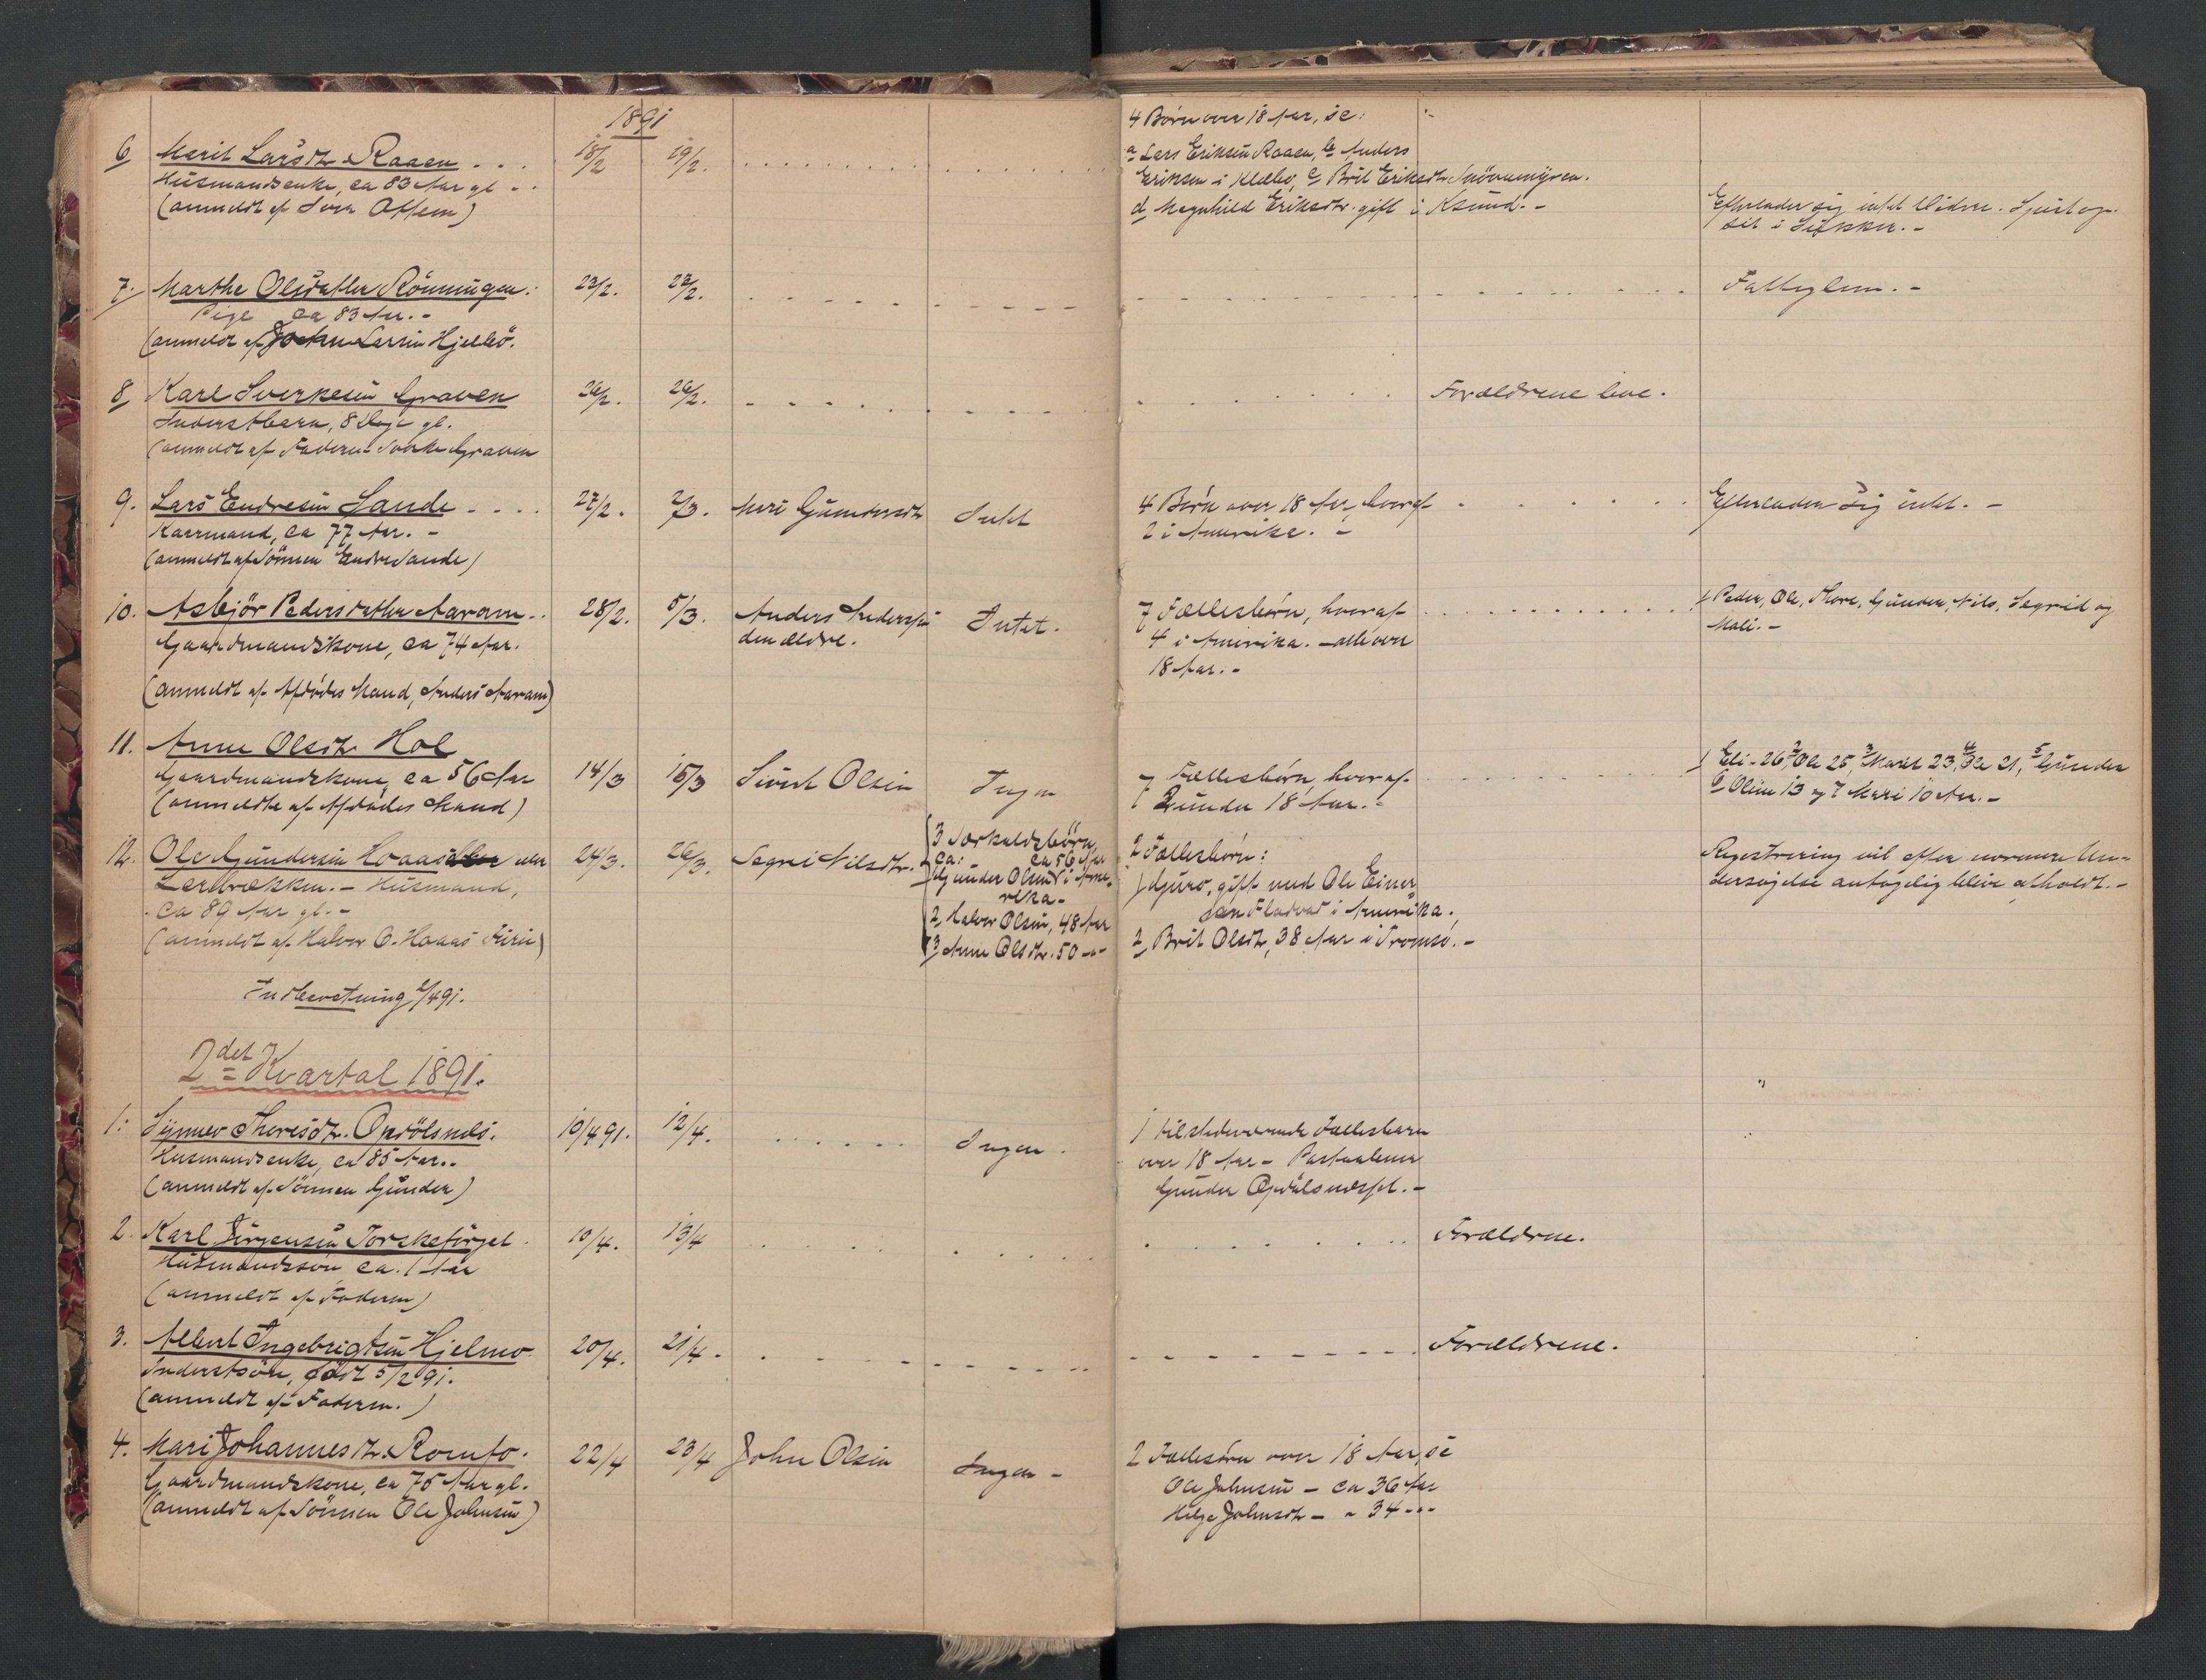 1891
6 Marit Larsdtr Raaen . . . 18/2 19/2. 4 Børn over 18 Aar, se:
Husmandsenke, ca 83 Aar gl - . a Lars Eriksen Raaen, b Anders
(anmeldt af Offem) Eriksen i Klæbo, c Brit Eriksdtr
d Magnhild Eriksdtr. gift i Efterlader sig intet Videre.
sit i
7. Marthe Olsdatter Rönningen. 23/2. 23/2. Fattiglem. -
Pige ca 83 Aar. -
(anmeldt af John Larsen Hjelbö.
8 Karl Sverkesen Graven 26/2. 26/2. Forældrene leve.
Inderstbarn, 8 Dage gl.
(anmeldt af Faderen Sverke Graven
9. Lars Endresen Sande - . . . 27/2. 2/3. Mari Gundersdtr Intet 4 Børn over 18 Aar, hvoraf Efterlader sig intet. -
Kaarmand, ca 77 Aar. - 2 i Amerika. -
(anmeldt af Sönnen Endre Sande)
10. Asbjör Pedersdatter Aaram . . 28/2. 5/3. Anders Andersen Intet. 7 Fællesbørn, hvoraf Peder, Ole, Thore, Gunder, Nils, Segrid og
Gaardmandskone, ca 74 Aar. den ældre. 4 i Amerika. - alle over Mali. -
18 Aar. -
(anmeldt af Afdødes Mand, Anders Aaram)
11. Anne Olsdtr Hol
Gaardmandskone, ca 56 Aar 14/3 15/3 Sivert Olsen Ingen 7 Fællesbørn, hvoraf 1 Eli - 26, 2 Ole 25, 3 Marit 23, 4 Ole 21, 5 Gunder
(anmeldte af Afdødes Mand) 2 under 18 Aar. - 6 Oline 13 og 7 Mari 10 Aar. -
12. Ole Gundersen Hoaas eller 24/3. 26/3. Segri Nilsdtr. 3 Særkuldsbørn, 2 Fællesbørn: Registrering vil efter nærmere Un-
Lerbrækken. - Husmand, ca: ca 56 Aar 1 Guro, gift med Ole Einer- dersøgelse antagelig blive afholdt. -
ca 89 Aar gl. - Gunder Olsen i Ame- sen Fladvad i Amerika.
rika - 2 Brit Olsdtr, 38 Aar i Tromsö. -
(anmeldt af Halvor O. Hoaas) 2, Halvor Olsen, 48 Aar
3 Anne Olsdtr. 50 -"-
Indberetning 2/4 91.
2det Kvartal 1891.
1. Synnev Thoresdtr. Opdölsnes. 10/4 91. 12/4. Ingen . 1 tilstedeværende Fællesbarn
Husmandsenke, ca 85 Aar. . over 18 Aar -
(anmeldt af Sönnen Gunder) Gunder
2. Karl Jörgensen 10/4. 13/4 Forældrene.
Husmandssön ca. 1 Aar
(anmeldt af Faderen)
3. Albert Ingebrigtsen Hjelmo 20/4. 21/4 . Forældrene.
Inderstsön, födt 5/2 91.
(anmeldt af Faderen.)
4. Mari Johannesdtr. Romfo. 22/4 23/4 John Olsen Ingen - 2 Fællesbörn over 18 Aar, se
Gaardmandskone, ca 75 Aar gl. Ole Johnsen - ca 36 Aar
(anmeldt af Sönnen Ole Johnsen) Helge Johnsdtr - " 34 -"-